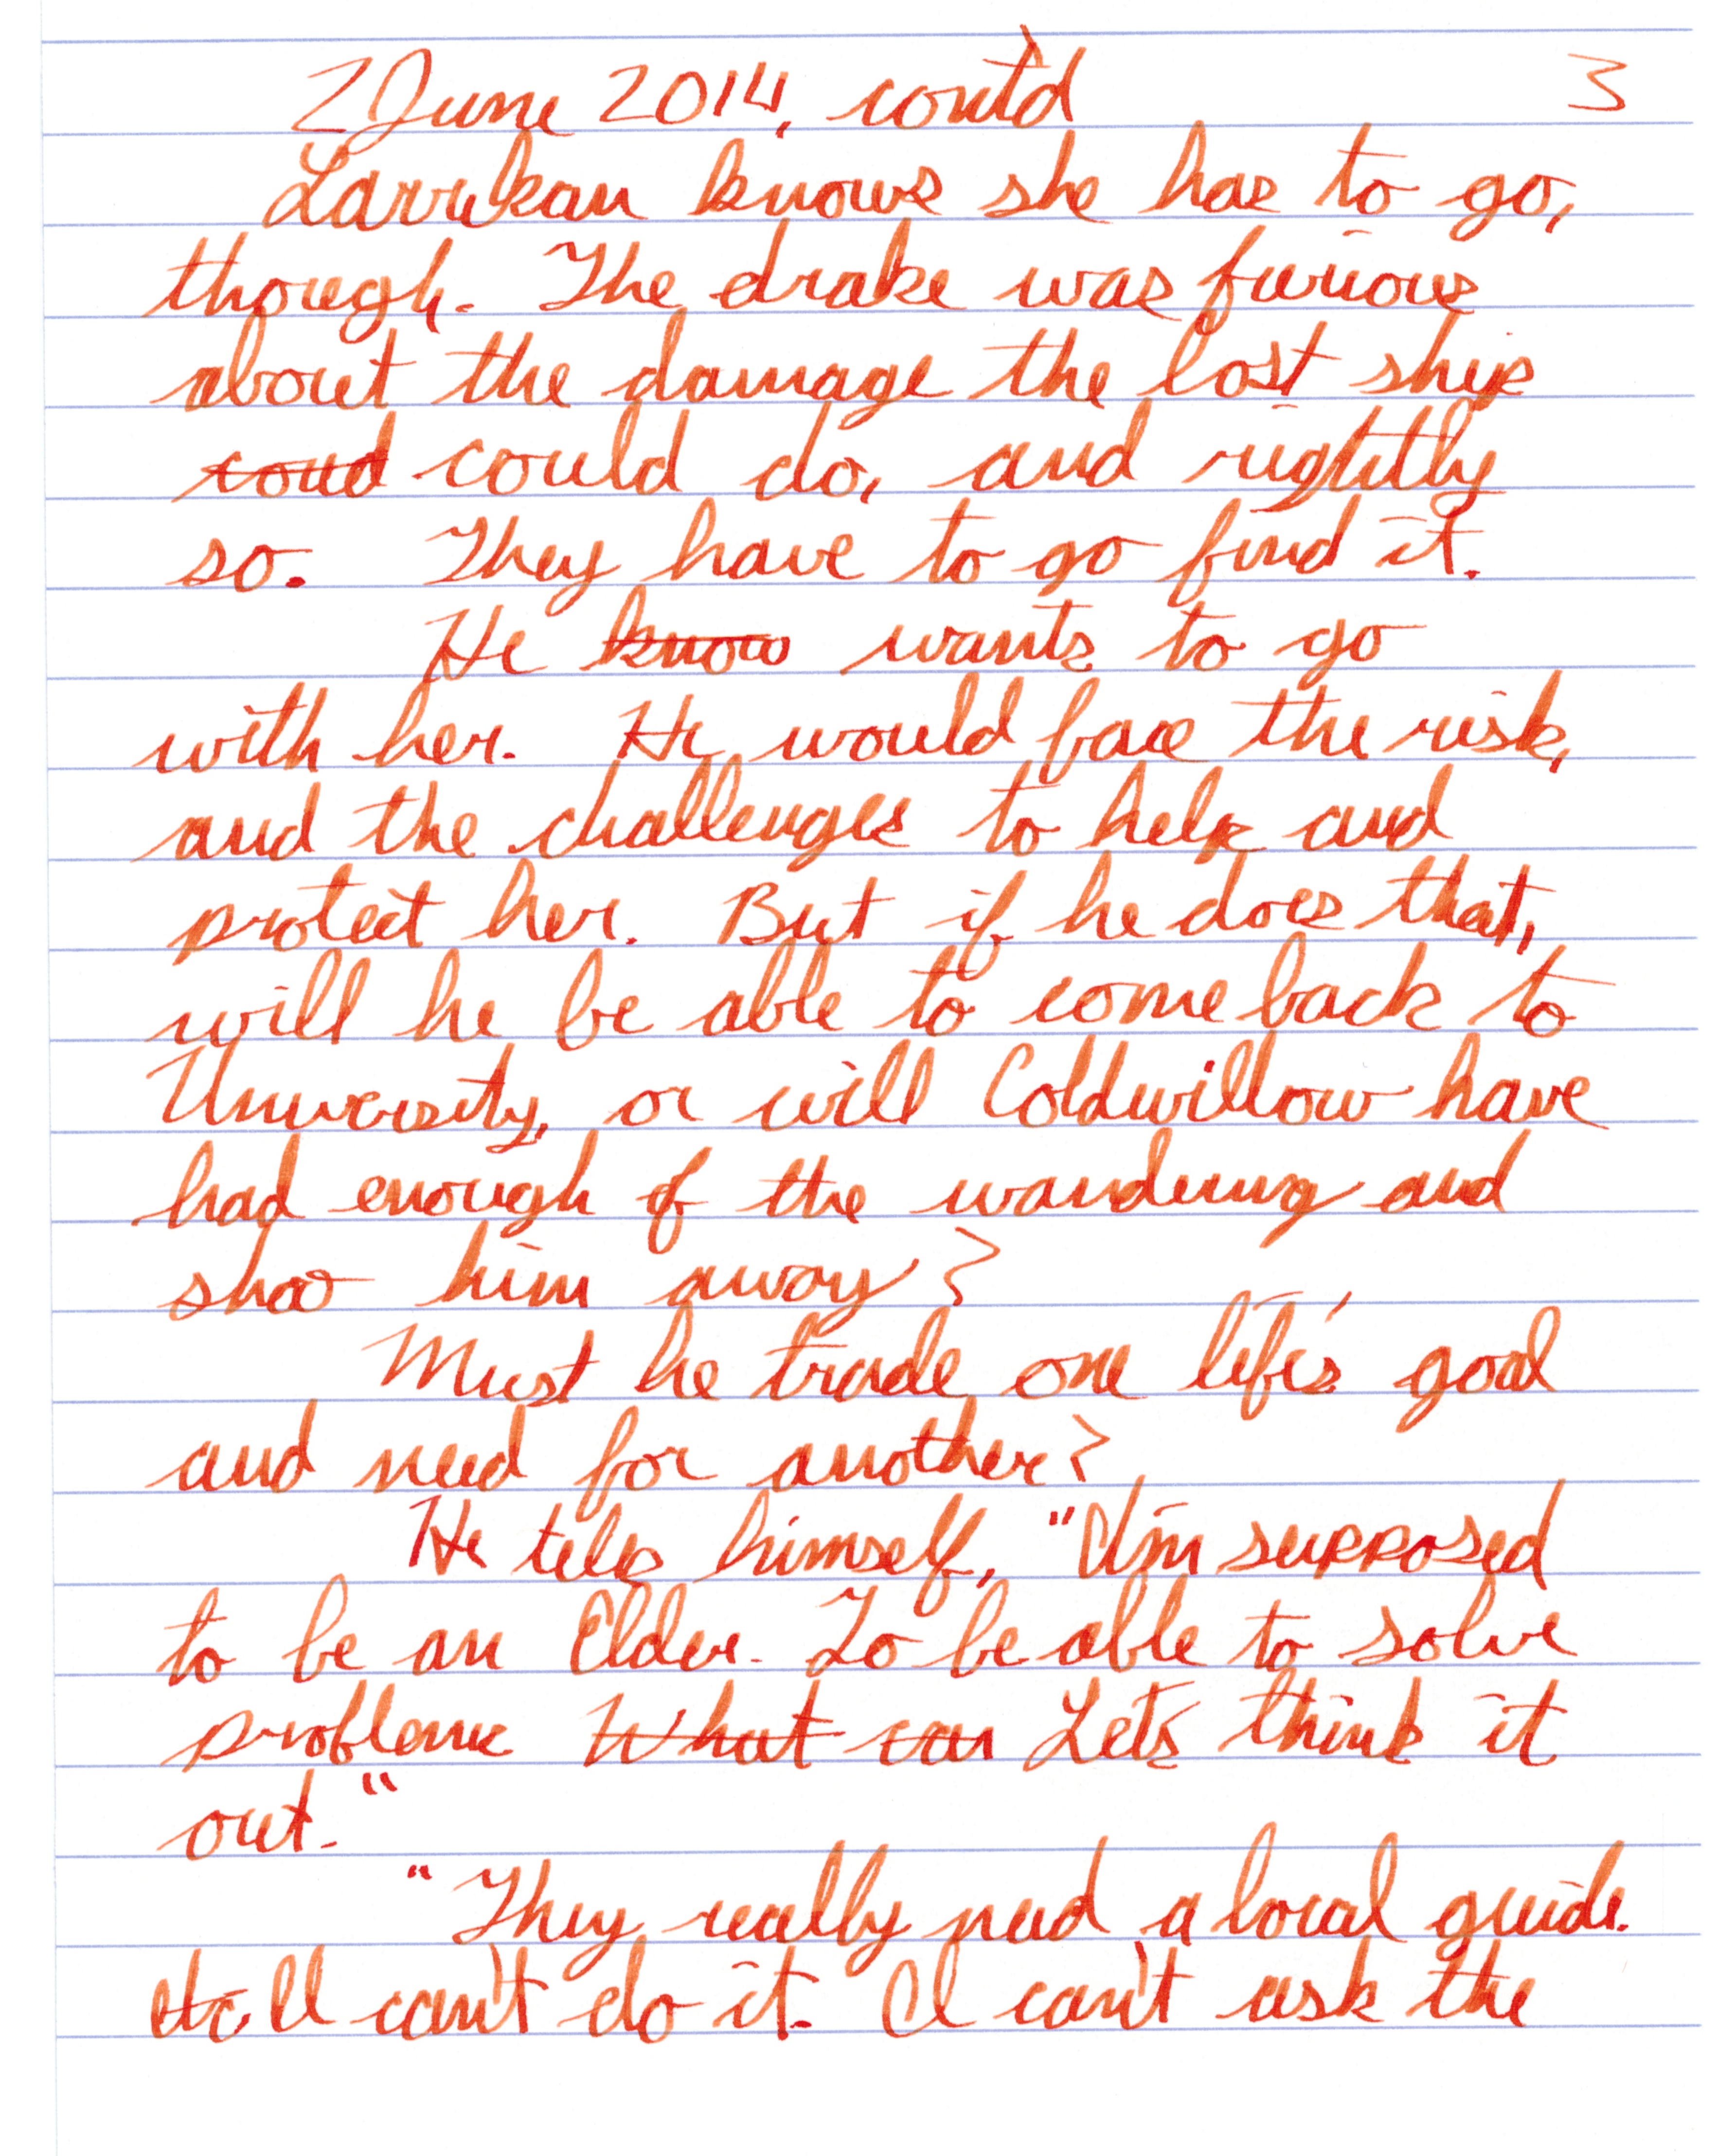 2 June 2014, cont'd 3
Larrekan knows she has to go,
though. The drake was furious
about the damage the lost ship
~~coud~~ could do, and rightly
so. They have to go find it.
He ~~know~~ wants to go
with her. He would face the risk,
and the challenges to help and
protect her. But if he does that,
will he be able to come back to
University, or will Coldwillow have
had enough of the wandering and
shoo him away?
Must he trade one life's goal
and need for another?
He tells himself, "I'm supposed
to be an Elder. To be able to solve
problems ~~What can~~ Let's think it
out."
"They really need a local guide.
~~He~~ I can't do it. I can't ask the